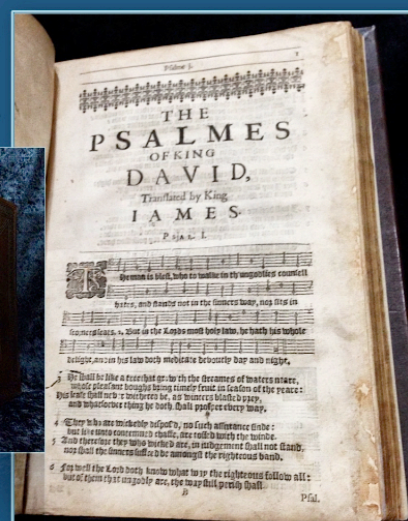 Psalme I.
1
THE
PSALMES
OF KING
DAVID,
Translated by King
IAMES.
PSAL. I.
The man is blest, who to walke in th'ungodlies counsell
hates, and stands not in the sinners way, nor sits in
scorners seats. 2. But in the Lords most holy law, he hath his whole
delight, and on his law doth meditate devoutly day and night.
3 He shall be like a tree that grow'th the streames of waters neare,
whose pleasant boughs bring timely fruit in season of the yeare:
His leafe shall never withered be, as winters blasted prey,
and whatsoever thing he doth shall prosper every way.
4 They who are wickedly dispos'd, no such assurance finde:
but like unto contemned chaffe, are tossed with the winde.
5 And therefore they who wicked are, in judgement shall not stand,
nor shall the sinners suffred be amongst the righteous band.
6 For well the Lord doth know what way the righteous follow all:
but of them that ungodly are, the way still perish shall.
B
Psal.